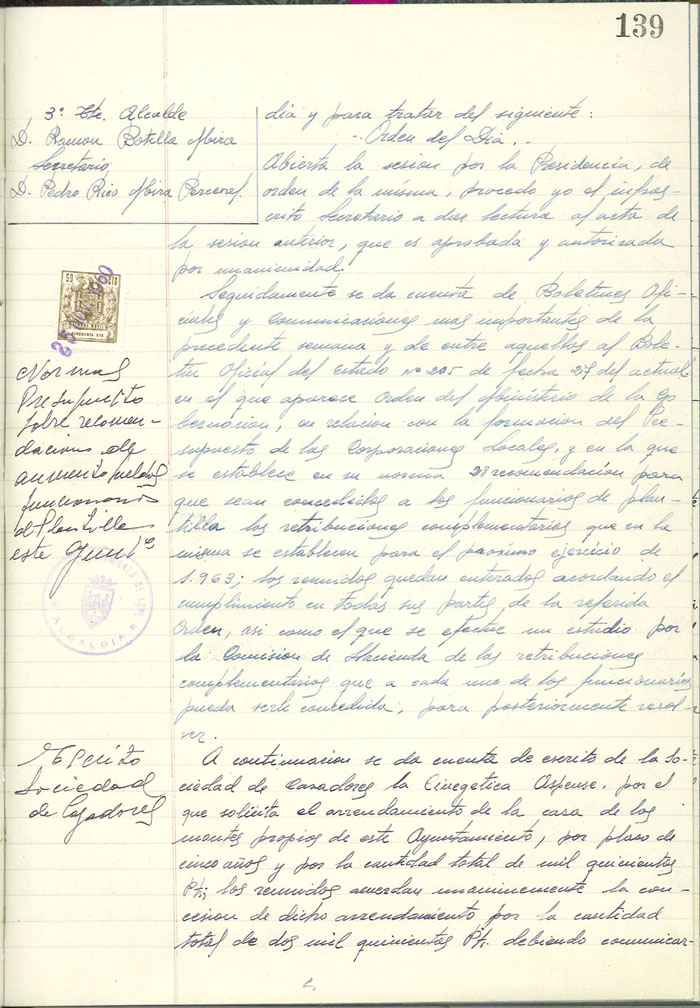 139
3º Tte. Alcalde
D. Ramon Botella Mira
Secretario
D. Pedro Rico Mira Perceval
dia y para tratar del siguiente:
- Orden del Dia. -
Abierta la sesion por la Presidencia, de
orden de la misma, procedo yo el infras-
crito Secretario a dar lectura al acta de
la sesion anterior, que es aprobada y autorizada
por unanimidad.
50 CTS
CINCUENTA CTS
1960
Seguidamente se da cuenta de Boletines Ofi-
ciales y comunicaciones mas importantes de la
precedente semana y de entre aquellos al Bole-
tin Oficial del estado nº 205 de fecha 27 del actual
en el que aparece Orden del Ministerio de la Go
bernacion, en relacion con la formacion del Pre-
supuesto de las Corporaciones Locales, y en la que
se establece en su norma 28 recomendacion para
que sean concedidas a los funcionarios de plan-
tilla las retribuciones complementarias que en la
misma se establecen para el proximo ejercicio de
1.963; los reunidos quedan enterados acordando el
cumplimiento en todas sus partes, de la referida
Orden, asi como el que se efectue un estudio por
la Comision de Hacienda de las retribuciones
complementarias que a cada uno de los funcionarios
pueda serle concedida, para posteriormente resol-
ver.
Normas
Presupuesto
sobre recomen-
daciones de
aumento sueldos
funcionarios
de Plantilla
este
ALCALDIA
Escrito
Sociedad
de Cazadores
A continuacion se da cuenta de escrito de la So-
ciedad de Cazadores la Cinegetica Aspense, por el
que solicita el arrendamiento de la casa de los
montes propios de este Ayuntamiento, por plazo de
cinco años y por la cantidad total de mil quinientas
Pts; los reunidos acuerdan unanimemente la con-
cesion de dicho arrendamiento por la cantidad
total de dos mil quinientas Pts. debiendo comunicar-